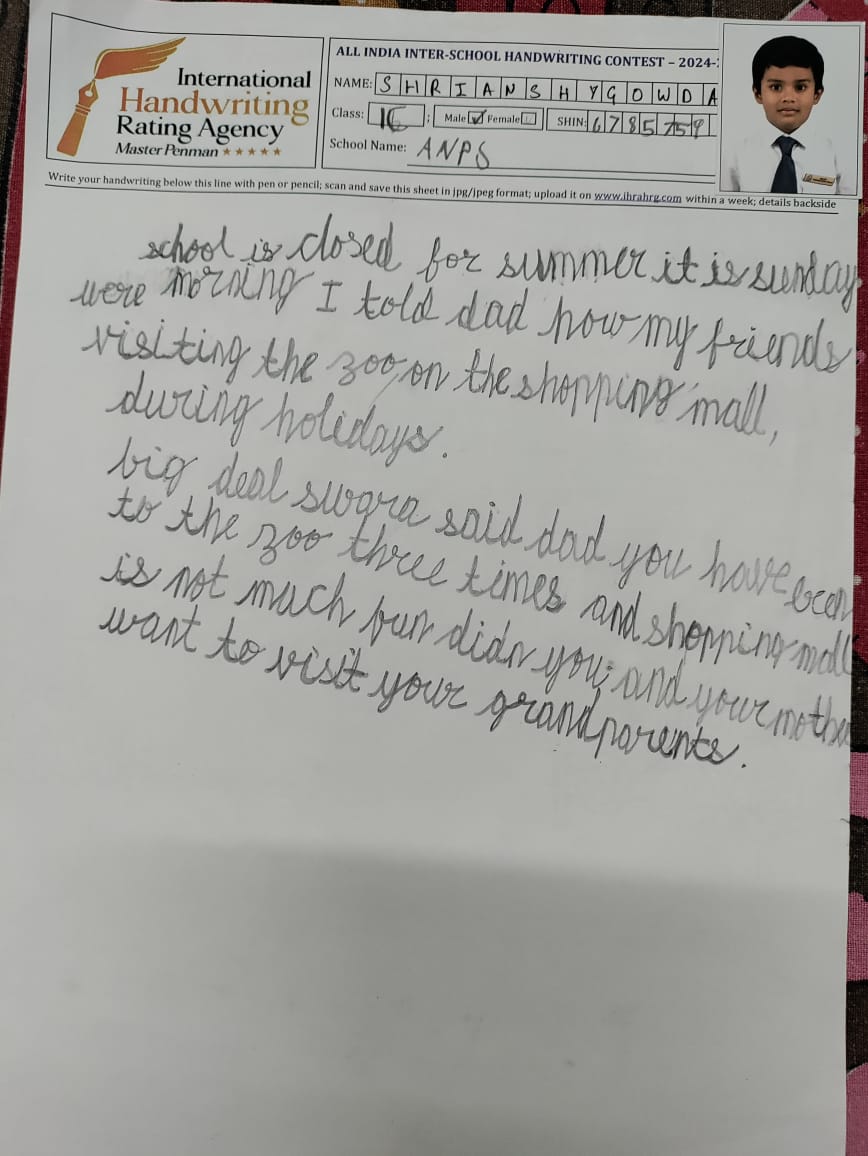 International
Handwriting
Rating Agency
Master Penman ★★★★★
ALL INDIA INTER-SCHOOL HANDWRITING CONTEST – 2024-
NAME: SHRIANSH Y GOWDA
Class: ; Male ☑ Female ☐ SHIN: 6785759
School Name: ANPS
Write your handwriting below this line with pen or pencil; scan and save this sheet in jpg/jpeg format; upload it on www.ihrahrg.com within a week; details backside
school is closed for summer it is sunday
were morning I told dad how my friends
visiting the zoo, on the shopping mall,
during holidays.
big deal swara said dad you have been
to the zoo three times and shopping mall
is not much fun didn you; and your mother
want to visit your grandparents.